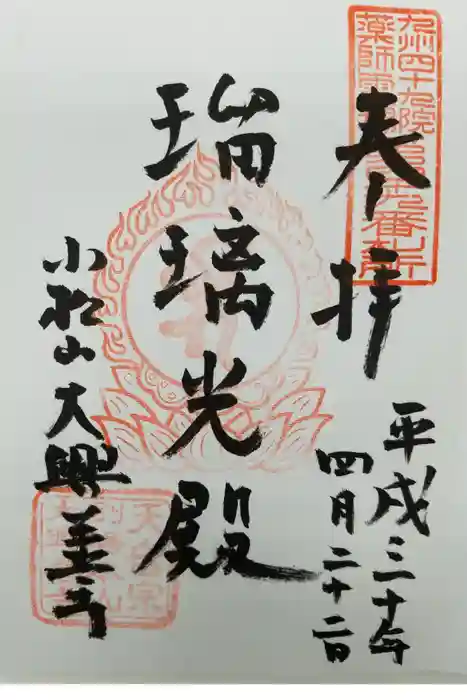 九州四十九院
薬師霊場
番札所
奉拝
平成三十年
四月二十二日
瑠璃光殿
小松山大興善寺
天台宗